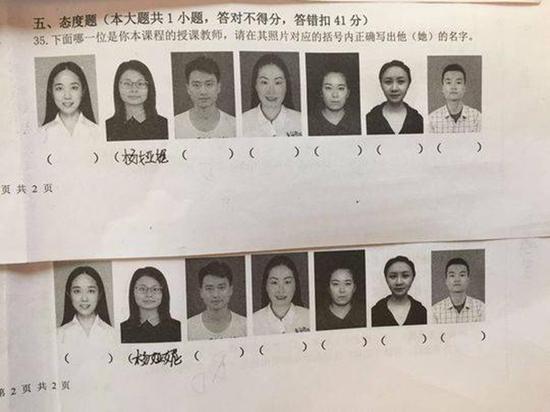 五、态度题（本大题共 1 小题，答对不得分，答错扣 41 分）
35. 下面哪一位是你本课程的授课教师，请在其照片对应的括号内正确写出他（她）的名字。
( ) ( ) ( ) ( ) ( ) ( ) ( )
页 共 2 页
( ) ( ) ( ) ( ) ( ) ( ) ( )
第 2 页 共 2 页